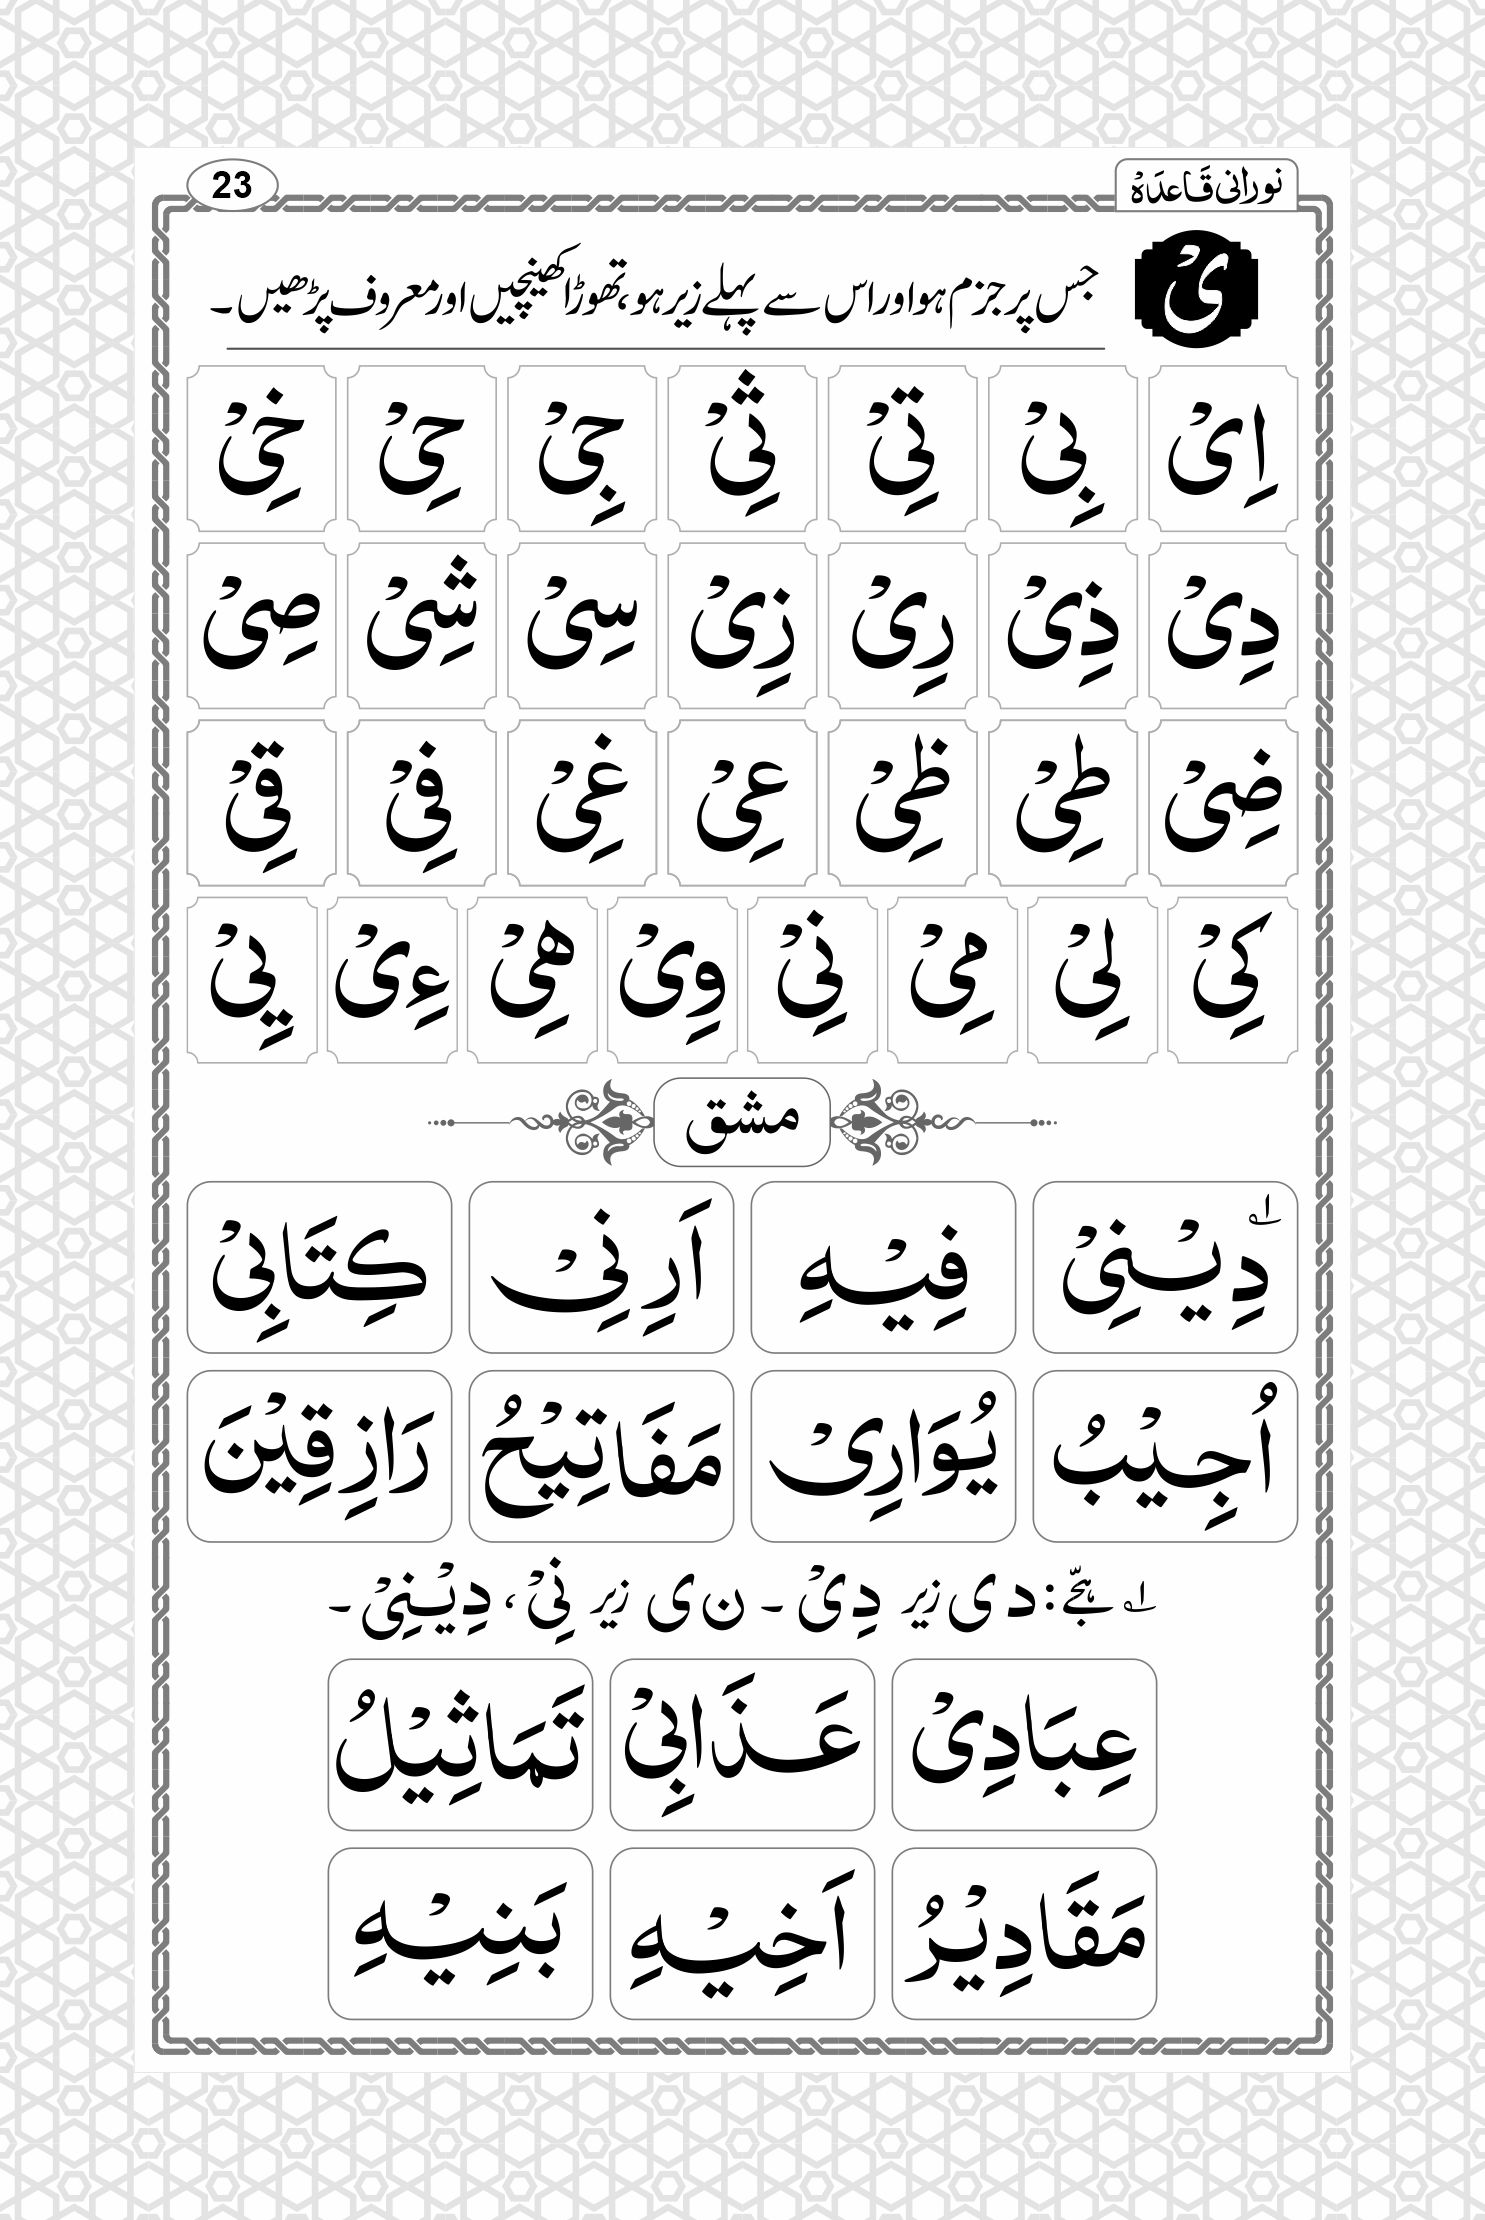 نورانی قَاعدَہ
23
یْ
جس پر جزم ہو اور اس سے پہلے زیر ہو، تھوڑا کھینچیں اور معروف پڑھیں۔
اِیْ بِیْ تِیْ ثِیْ جِیْ حِیْ خِیْ
دِیْ ذِیْ رِیْ زِیْ سِیْ شِیْ صِیْ
ضِیْ طِیْ ظِیْ عِیْ غِیْ فِیْ قِیْ
کِیْ لِیْ مِیْ نِیْ وِیْ هِیْ ءِیْ یِیْ
مشق
دِیْنِیْ؁۱ فِیْهِ اَرِنِیْ کِتَابِیْ
اُجِیْبُ یُوَارِیْ مَفَاتِیْحُ رَازِقِیْنَ
؁۱ ہجّے: د ی زیر دِیْ ۔ ن ی زیر نِیْ، دِیْنِیْ۔
عِبَادِیْ عَذَابِیْ تَمَاثِیْلُ
مَقَادِیْرُ اَخِیْهِ بَنِیْهِ